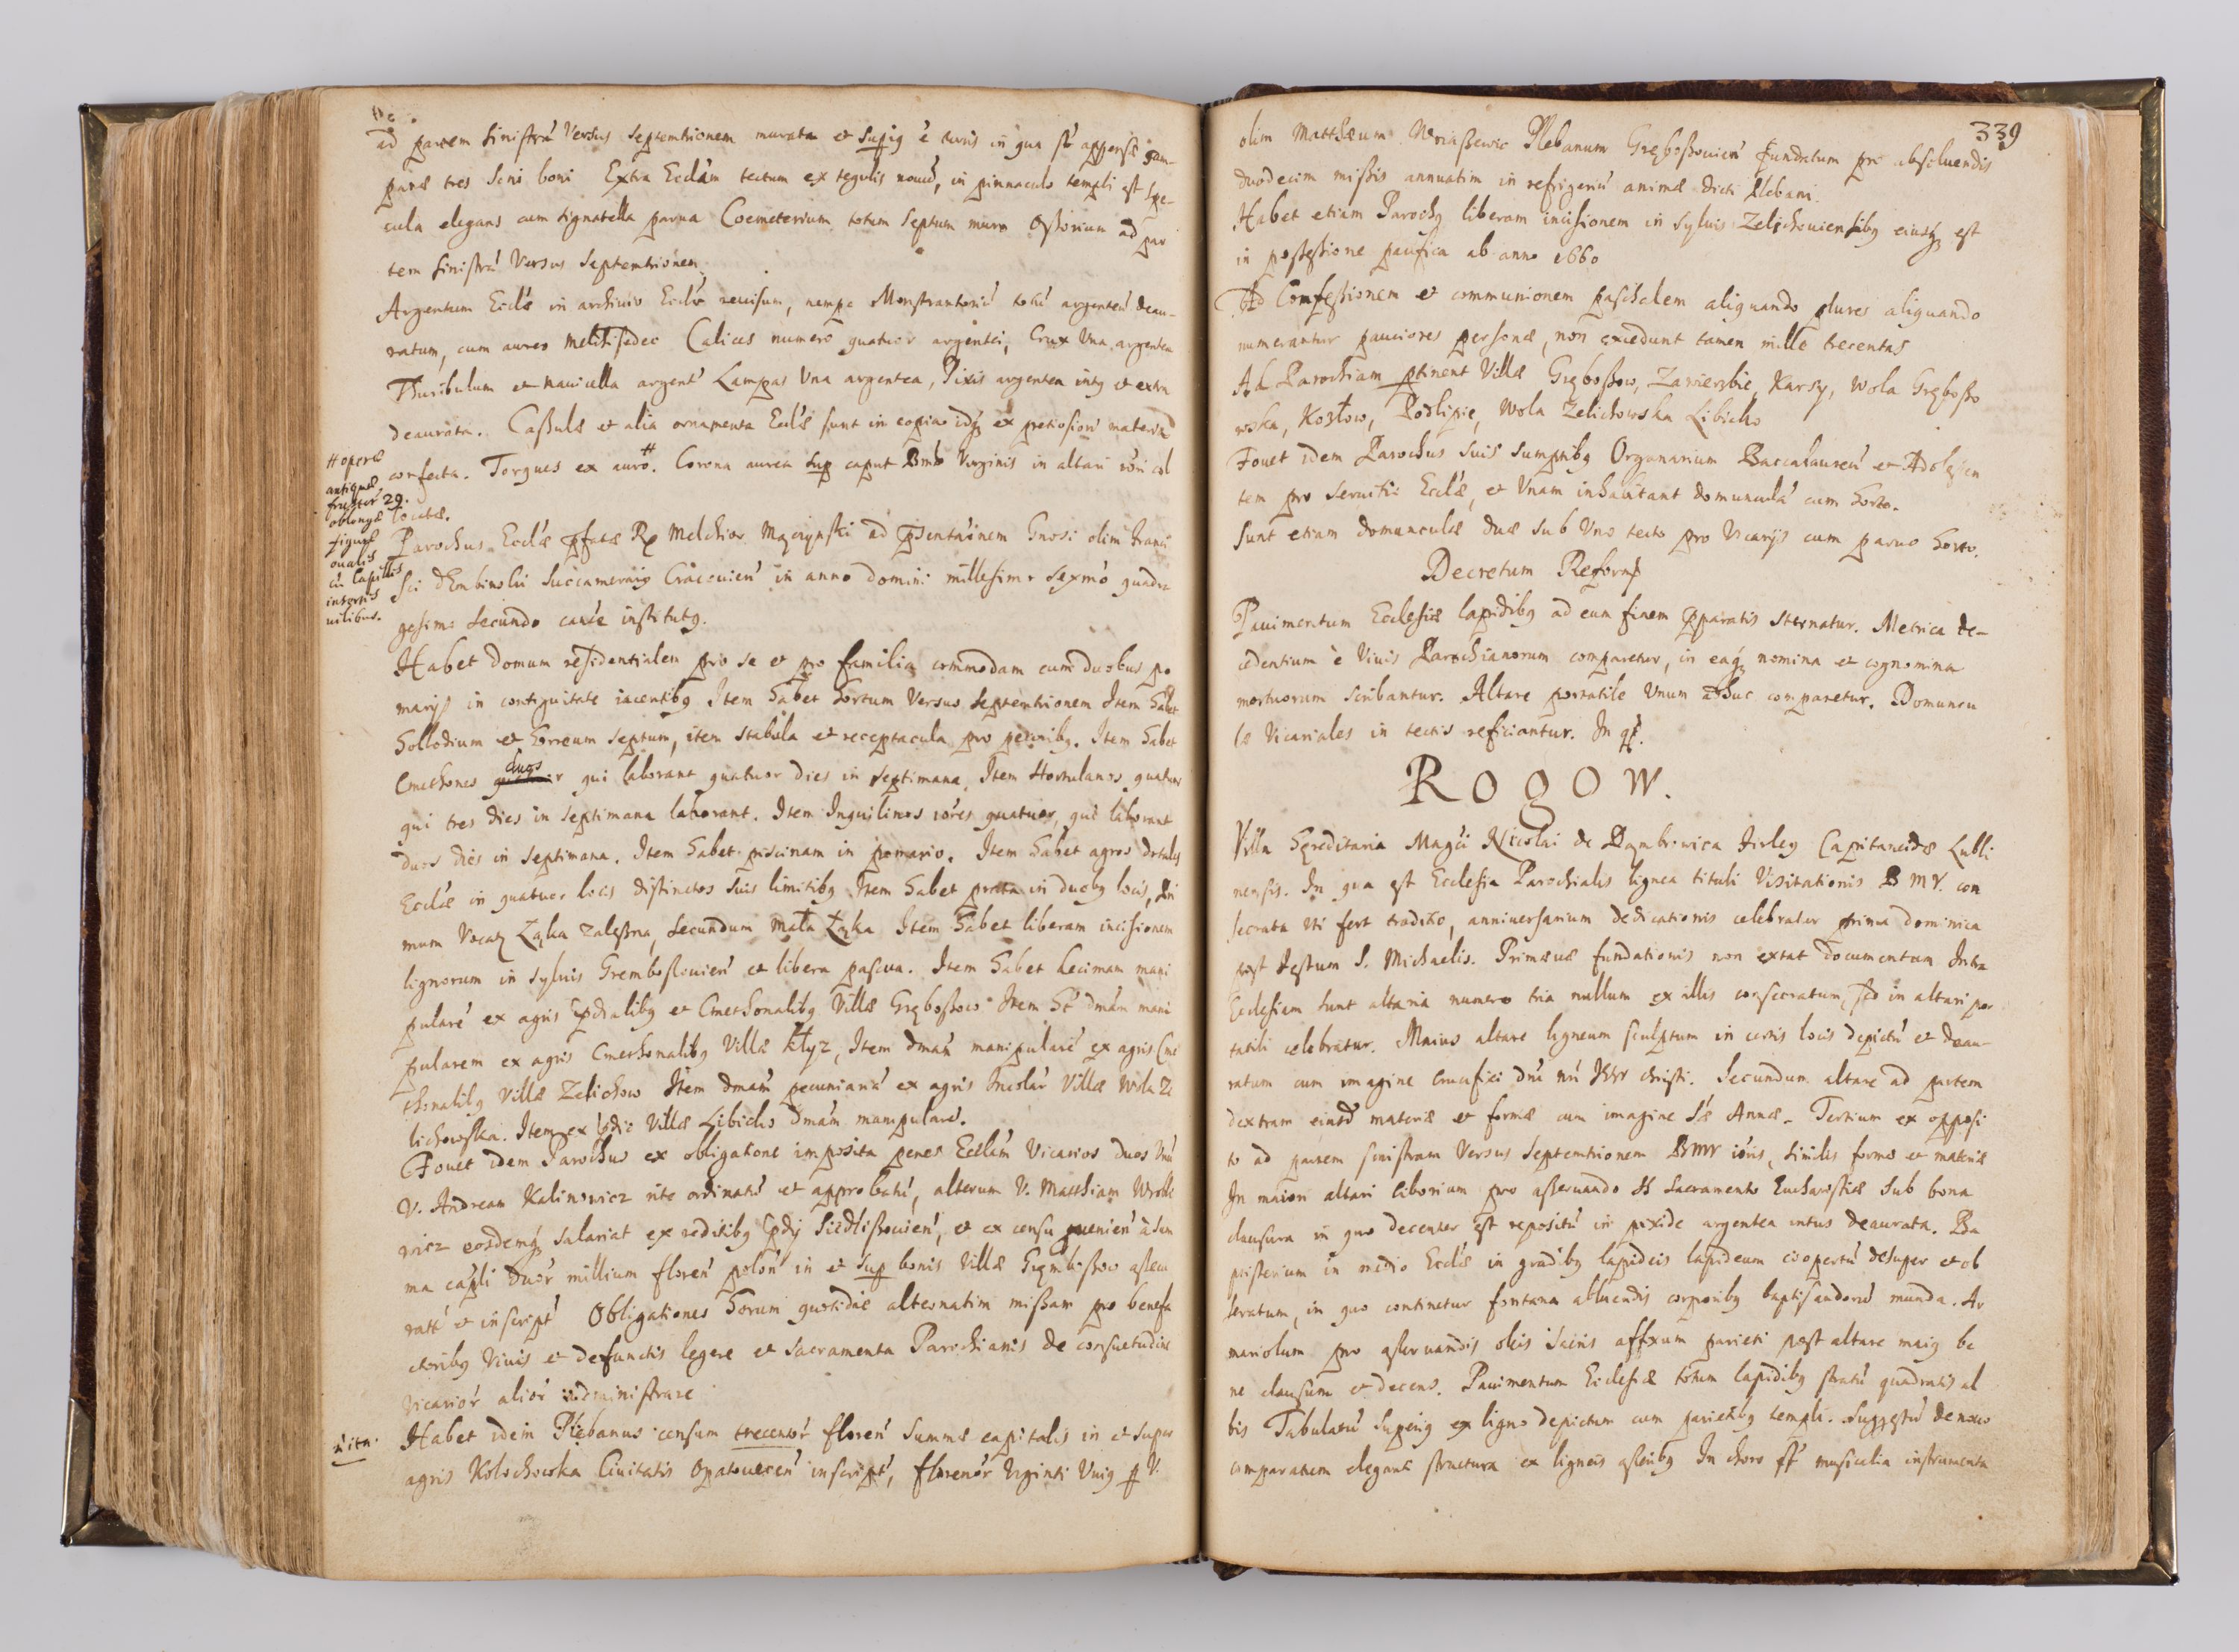 ad partem sinistrã Versus Septemtrionem murata et Supig è turris in qua st̃ appensæ Cam-
panæ tres Soni boni Extra Ecclãm tectum ex tegulis nouũ, in pinnaculo templi est spe-
cula elegans cum signatella parua Coemeterium totum Septum muro Ossorium ad par
tem sinistrã Versus Septemtrionem.
Argentum Ecclæ in archiuio Ecclæ reuisum, nempe Monstrantoriũ totũ argenteũ deau-
ratum, cum aureo Melchisedec Calices numero quatuor argentei, Crux Vna argentea
Thuribulum et Nauicella argent̃ Lampas Vna argentea, Pixis argentea intq et extra
deaurata. Cassulæ et alia ornamenta Ecclæ sunt in copia idq ex pretiosiori materia
confecta. Torques ex auro #. Corona aurea sup caput Bmæ Virginis in altari iõri col
# operæ
antiquæ
frustor̃ 29.
oblongæ
figuræ
oualis
cũ lapillis
intortis
uilibus.
locatæ.
Parochus Ecclæ pfatæ R Melchior Mączyński ad pسentañem Gnosi olim Franci
sci dEmbinski Succamerarij Cracouieñ in anno domini millesimo Sexmõ quadra
gesimo Secundo cañce institutq.
Habet domum residentialem pro se et pro familia commodam cum duobus po
marijs in contiguitate iacentibq Item habet hortum Versus Septemtrionem Item habet
hollodium et horreum septum, item stabula et receptacula pro pecoribq. Item habet
Cmethones duos qui laborant quatuor dies in Septimana. Item Hortulanos quatuor
qui tres dies in Septimana laborant. Item Inquilinos iores quatuor, qui laborant
duos dies in Septimana. Item habet piscinam in pomario. Item habet agros dotales
Ecclæ in quatuor locis distinctos suis limitibq Item habet prata in duobq locis, pri
mum Vocaꝶ Łąka zaleszna, Secundum Mała Łąka Item habet liberam incisionem
lignorum in syluis Grembosouieñ et libera pascua. Item habet decimam mani
pularẽ ex agris prædialibq et Cmethonalibq Villæ Grębossow Item ht̃ dmãm mani
pularem ex agris Cmethonalibq Villæ Kłyz, Item dmãm manipularẽ ex agris Cme
thonalibq Villæ Zelichow Item dmãm pecuniariã ex agris Incolar̃ Villæ Wola Ze
lichowska. Item ex prædio Villæ Libicho dmãm manipularẽ.
Fouet idem Parochus ex obligatione imposita penes Ecclãm Vicarios duos Vnũ
V. Andream Kalinowicz rite ordinatũ et approbatũ, alterum V. Matthiam Wroble
wicz eosdemq salariat ex reditibq prædij Siedliszouieñ, et ex censu proueñieñ à Sum
ma capli duor̃ millium floreñ poloñ in et sup bonis Villæ Gręmbossow asseu
ratẽ et inscript̃ Obligationes horum quotidie alternatim missam pro benefa
ctoribq Viuis et defunctis legere et sacramenta Parochianis de consuetudine
Vicarior̃ alior̃ administrare
Habet idem Plebanus censum trecentor̃ floreñ Summæ capitalis in et super
agris Kolochowska Ciuitatis Opatouiecen̄ inscript̃, florenor̃ Viginti Vniq p V.
339
olim Matthæum Plebanum Gręboszouień fundatum pro absoluendis
duodecim missis annuatim in refrigeriũ animæ dicti Plebani.
Habet etiam Parochq liberam incisionem in syluis Zelichouiensibq eiusq est
in possessione pacifica ab anno 1660
Ad Confessionem et communionem paschalem aliquando plures aliquando
numerantur pauciores personæ, non excedunt tamen mille trecentas
Ad Parochiam ptinent Villæ Gręboszow, Zawierzbie, Karsy, Wola Gręboszo
wska, Kozłow, Podlipie, Wola Zelichowska Libicho
Fouet idem Parochus suis sumptibq Organarium Baccalaureũ et Adolescen
tem pro seruitio Ecclæ, et Vnam inhabitant domunculã cum horto.
Sunt etiam domunculæ duæ sub Vno tecto pro Vicarijs cum paruo horto.
Decretum Reform̃
Pauimentum Ecclesiæ lapidibq ad eum finem pparatis sternatur. Metrica de-
cedentium è Viuis Parochianorum comparetur, in eaq nomina et cognomina
mortuorum scribantur. Altare portatile Vnum adhuc comparetur. Domuncu
læ Vicariales in tectis reficiantur. In q.
ROgOW.
Villa hæreditaria Magci Nicolai de Dąmbrowica Firley Capitaneidæ Lubli
nensis. In qua est Ecclesia Parochialis lignea tituli Visitationis B M V. con
secrata uti fert traditio, anniuersarium dedicationis celebratur prima dominica
post festum S. Michaelis. Primæuæ fundationis non extat documentum Intra
Ecclesiam sunt altaria numero tria nullum ex illis consecratum, sed in altari por
tatili celebratur. Maius altare ligneum sculptum in certis locis depictũ et deau-
ratum cum imagine Crucifixi dni nri Jesu christi. Secundum altare ad partem
dextram eiusd materiæ et formæ cum imagine Sæ Annæ. Tertium ex opposi
to ad partem sinistram Versus Septemtrionem BMV ióris, similis formæ et materiæ
In maiori altari ciborium pro asseruando SS Sacramento Eucharistiæ sub bona
clausura in quo decenter est repositũ in pixide argentea intus deaurata. Ba
ptisterium in medio Ecclæ in gradibq lapideis lapideum coopertũ desuper et ob
seratum, in quo continetur fontana abluendis corporibq baptisandorũ munda. Ar
mariolum pro asseruandis oleis sacris affixum parieti post altare maiq be
ne clausum et decens. Pauimentum Ecclesiæ totum lapidibq stratũ quadratis al
bis Tabulatũ superiq ex ligno depictum cum parietibq templi. Suggestũ de nouo
comparatum eleganti structura ex ligneis asseribq In choro musicalia instrumenta